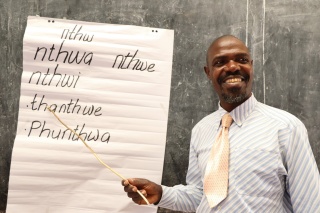 nthw
nthwa nthwe
nthwi
.thanthwe
.Phunthwa